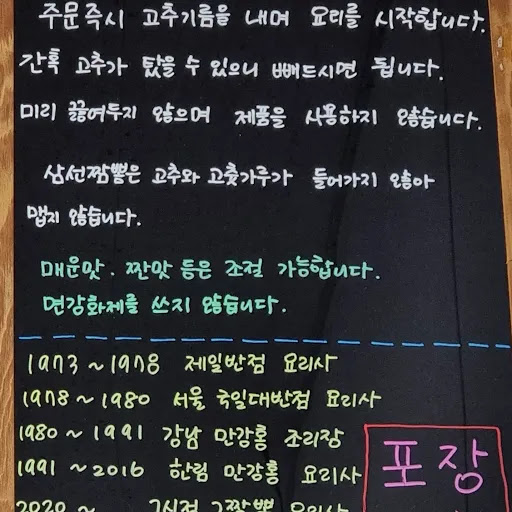 주문즉시 고추기름을 내며 요리를 시작합니다.
간혹 고추가 탔을 수 있으니 빼드시면 됩니다.
미리 끓여두지 않으며 제품을 사용하지 않습니다.
삼선짬뽕은 고추와 고춧가루가 들어가지 않아
맵지 않습니다.
매운맛. 짠맛 등은 조절 가능합니다.
면강화제를 쓰지 않습니다.
1973 ~ 1978 제일반점 요리사
1978 ~ 1980 서울 국일대반점 요리사
1980 ~ 1991 강남 만강홍 조리장
1991 ~ 2016 한림 만강홍 요리사
2020 ~ 그시절 그짬뽕 요리사
포장